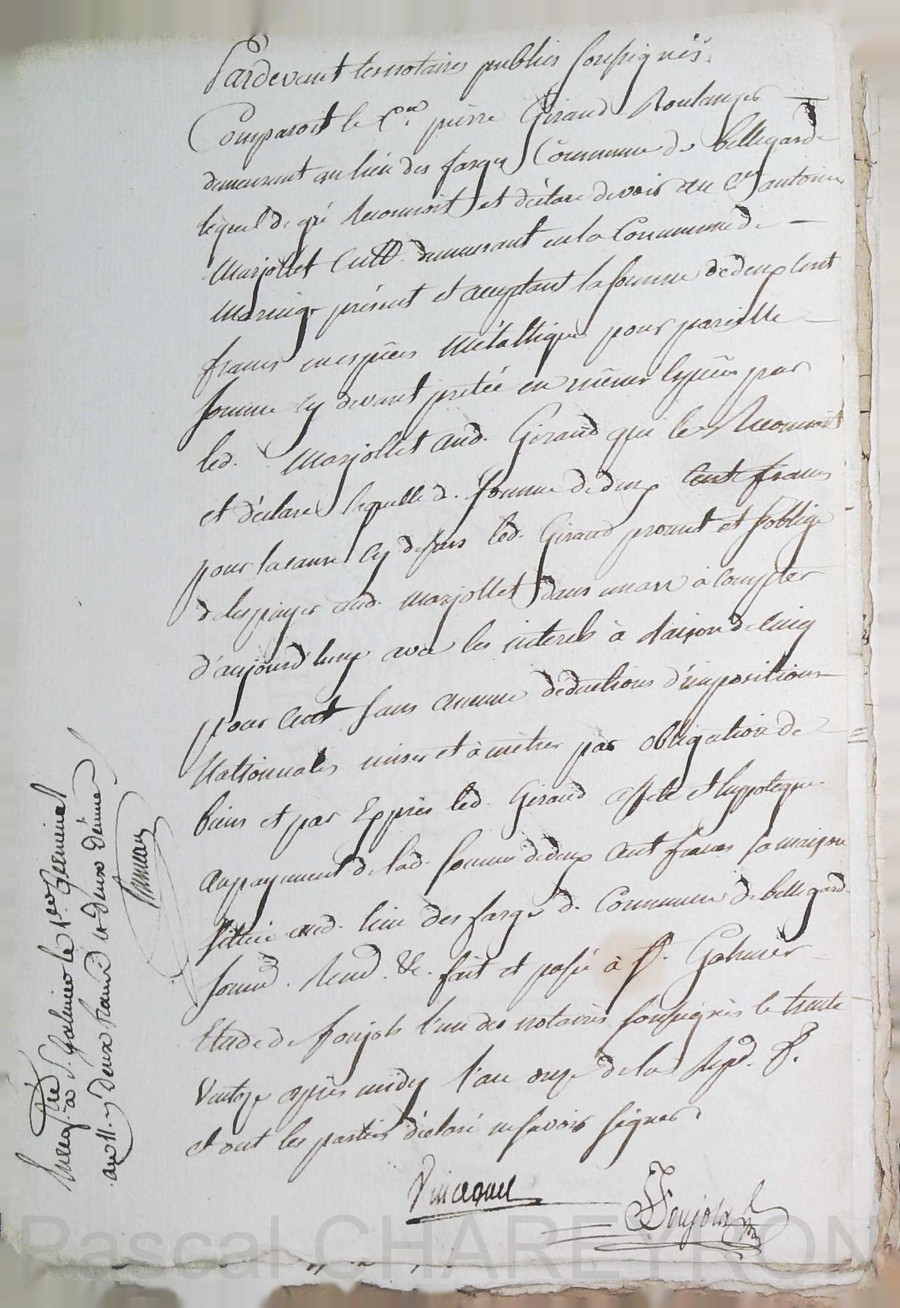 Pardevant les notaires publics soussignés,
Comparoit le Cen. pierre Giraud Boulanger
demeurant au lieu des farges Commune de bellegarde
lequel de gré reconnoit et déclare devoir au Cen antoine
Marjollet Cult. demeurant en la Commune de
Maringe présent et acceptant la somme de deux cent
francs en espèces métallique pour pareille
somme cy devant pretée en même espèces par
led. Marjollet aud. Giraud que le reconnoit
et déclare laquelle d. somme de deux cent francs
pour la cause cy dessus led. Giraud promet et s'oblige
de les payer aud. Marjollet dans un an à compter
d'aujourd'huy avec les interets à raison de cinq
pour cent sans aucune déductions d'impositions
Nationnales mises et à mettre par obligation de
biens et par Exprès led. Giraud affecte et hyppoteque
au payement de lad. somme de deux cent francs sa maison
située aud. lieu des farge d. Commune de bellegarde
soumd. Rend. &c. fait et passé à St. Galmier
Etude de Foujols l'un des notaires soussignés le trente
Ventose après midy l'an onze de la Rep. f.
et ont les parties déclaré ne savoir signer
Foujols
Enreg. tré à St. Galmier le 1er. Germinal
an 11. y deux francs et deux décime